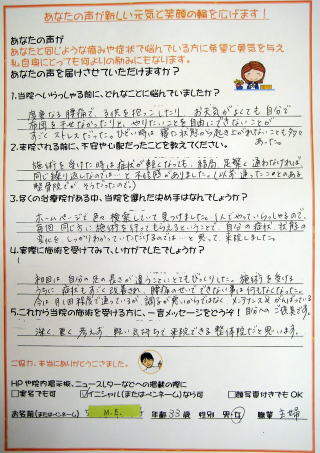 あなたの声が新しい元気と笑顔の輪を広げます！
あなたの声が
あなたと同じような痛みや症状で悩んでいる方に希望と勇気を与え
私自身にとっても何よりの励みにもなります。
あなたの声を届けさせていただけますか？
1.当院へいらっしゃる前に、どれなことに悩んでいましたか？
度重なる腰痛で、子供を抱っこしたり、お天気がよくても自分で
布団を干せなかったりと、やりたいことを自由にできないことが
すごくストレスだった。ひどい時は寝た状態から起き上がれないことも多々
あった。
2.来院される前に、不安や心配だったことを教えてください。
施術を受けた時は症状が軽くなっても、結局、足繁く通わなければ
同じ繰り返しなのでは…と不信感がありました。(以前通ったことのある
整骨院が、そうだったので。)
3.尽くの治療院がある中、当院を選れた決め手はなんでしょうか？
ホームページで色々検索していて見つけました。1人でやっていらっしゃるので、
毎回同じ方に施術を行ってもらえるということで、自分の症状、状態の
変化をしっかりわかっていただけるのでは…と思って、来院しました。
4.実際に施術を受けてみて、いかがでしたでしょうか？
初回は自分の足の長さが違うことにとてもびっくりした。施術を受ける
うちに症状もすごく改善され、腰痛のせいでできない事は何もなくなった。
今は月1回程度で通っているが、調子が悪いからではなく、メンテナンス&がんばっている
自分へのご褒美です。
5.これから当院の施術を受ける方に、一言メッセージをどうぞ！
深く、重く考えず、軽い気持ちで来院できる整体院だと思います。
ご協力、本当にありがとうございました。
HPや院内掲示板、ニュースレターなどへの掲載の際に
□実名でも可 ☑イニシャル(またはペンネーム)なら可 □顔写真付きでもOK
お名前(またはペンネーム) M.E. 年齢 33歳 性別 男・女 職業 主婦